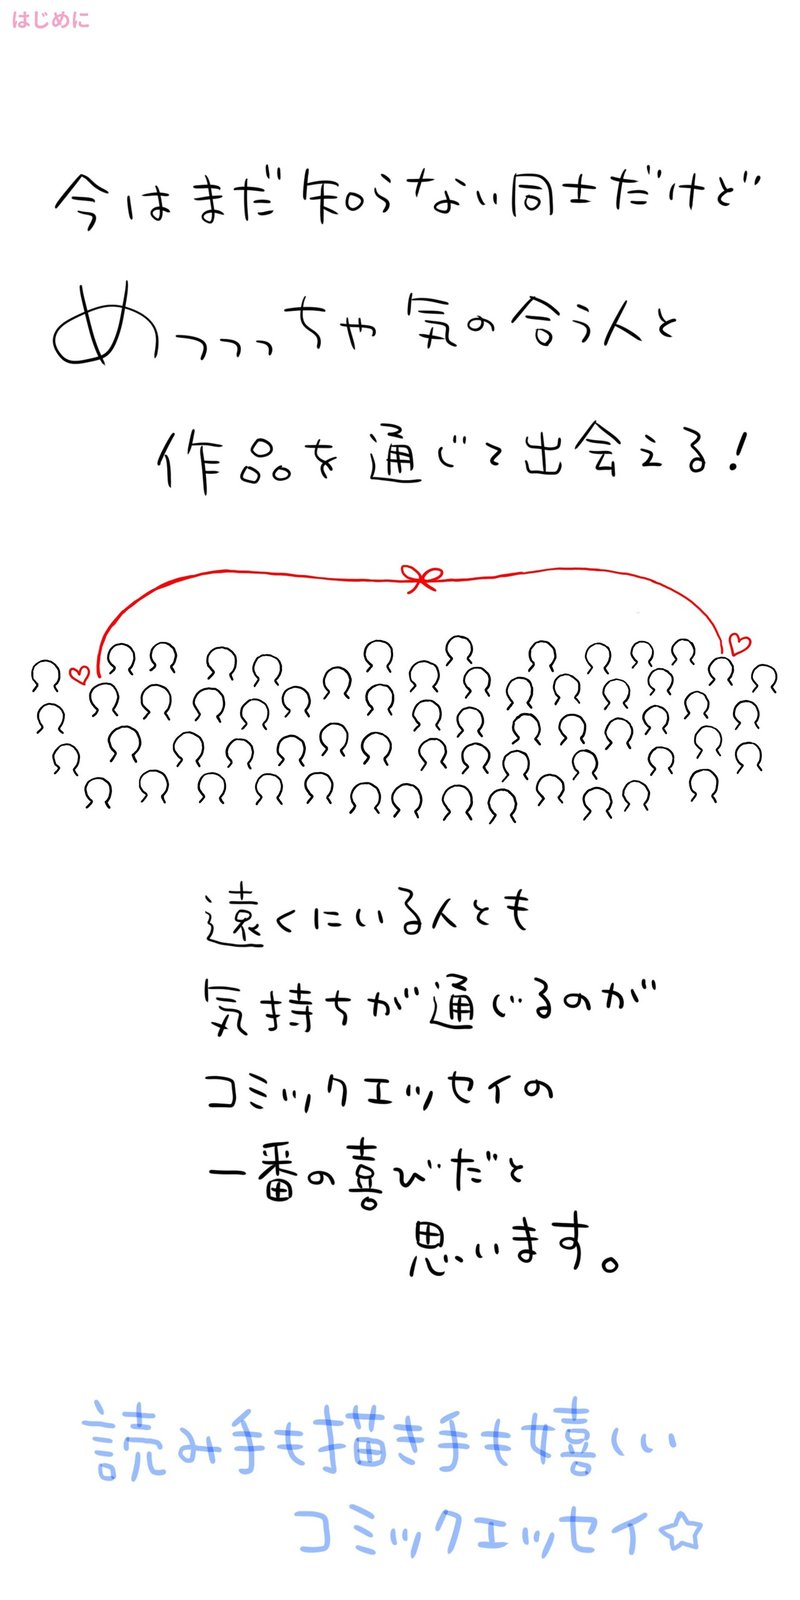 はじめに
今はまだ知らない同士だけど
めっっっちゃ気の合う人と
作品を通じて出会える!
遠くにいる人とも
気持ちが通じるのが
コミックエッセイの
一番の喜びだと
思います。
読み手も描き手も嬉しい
コミックエッセイ☆